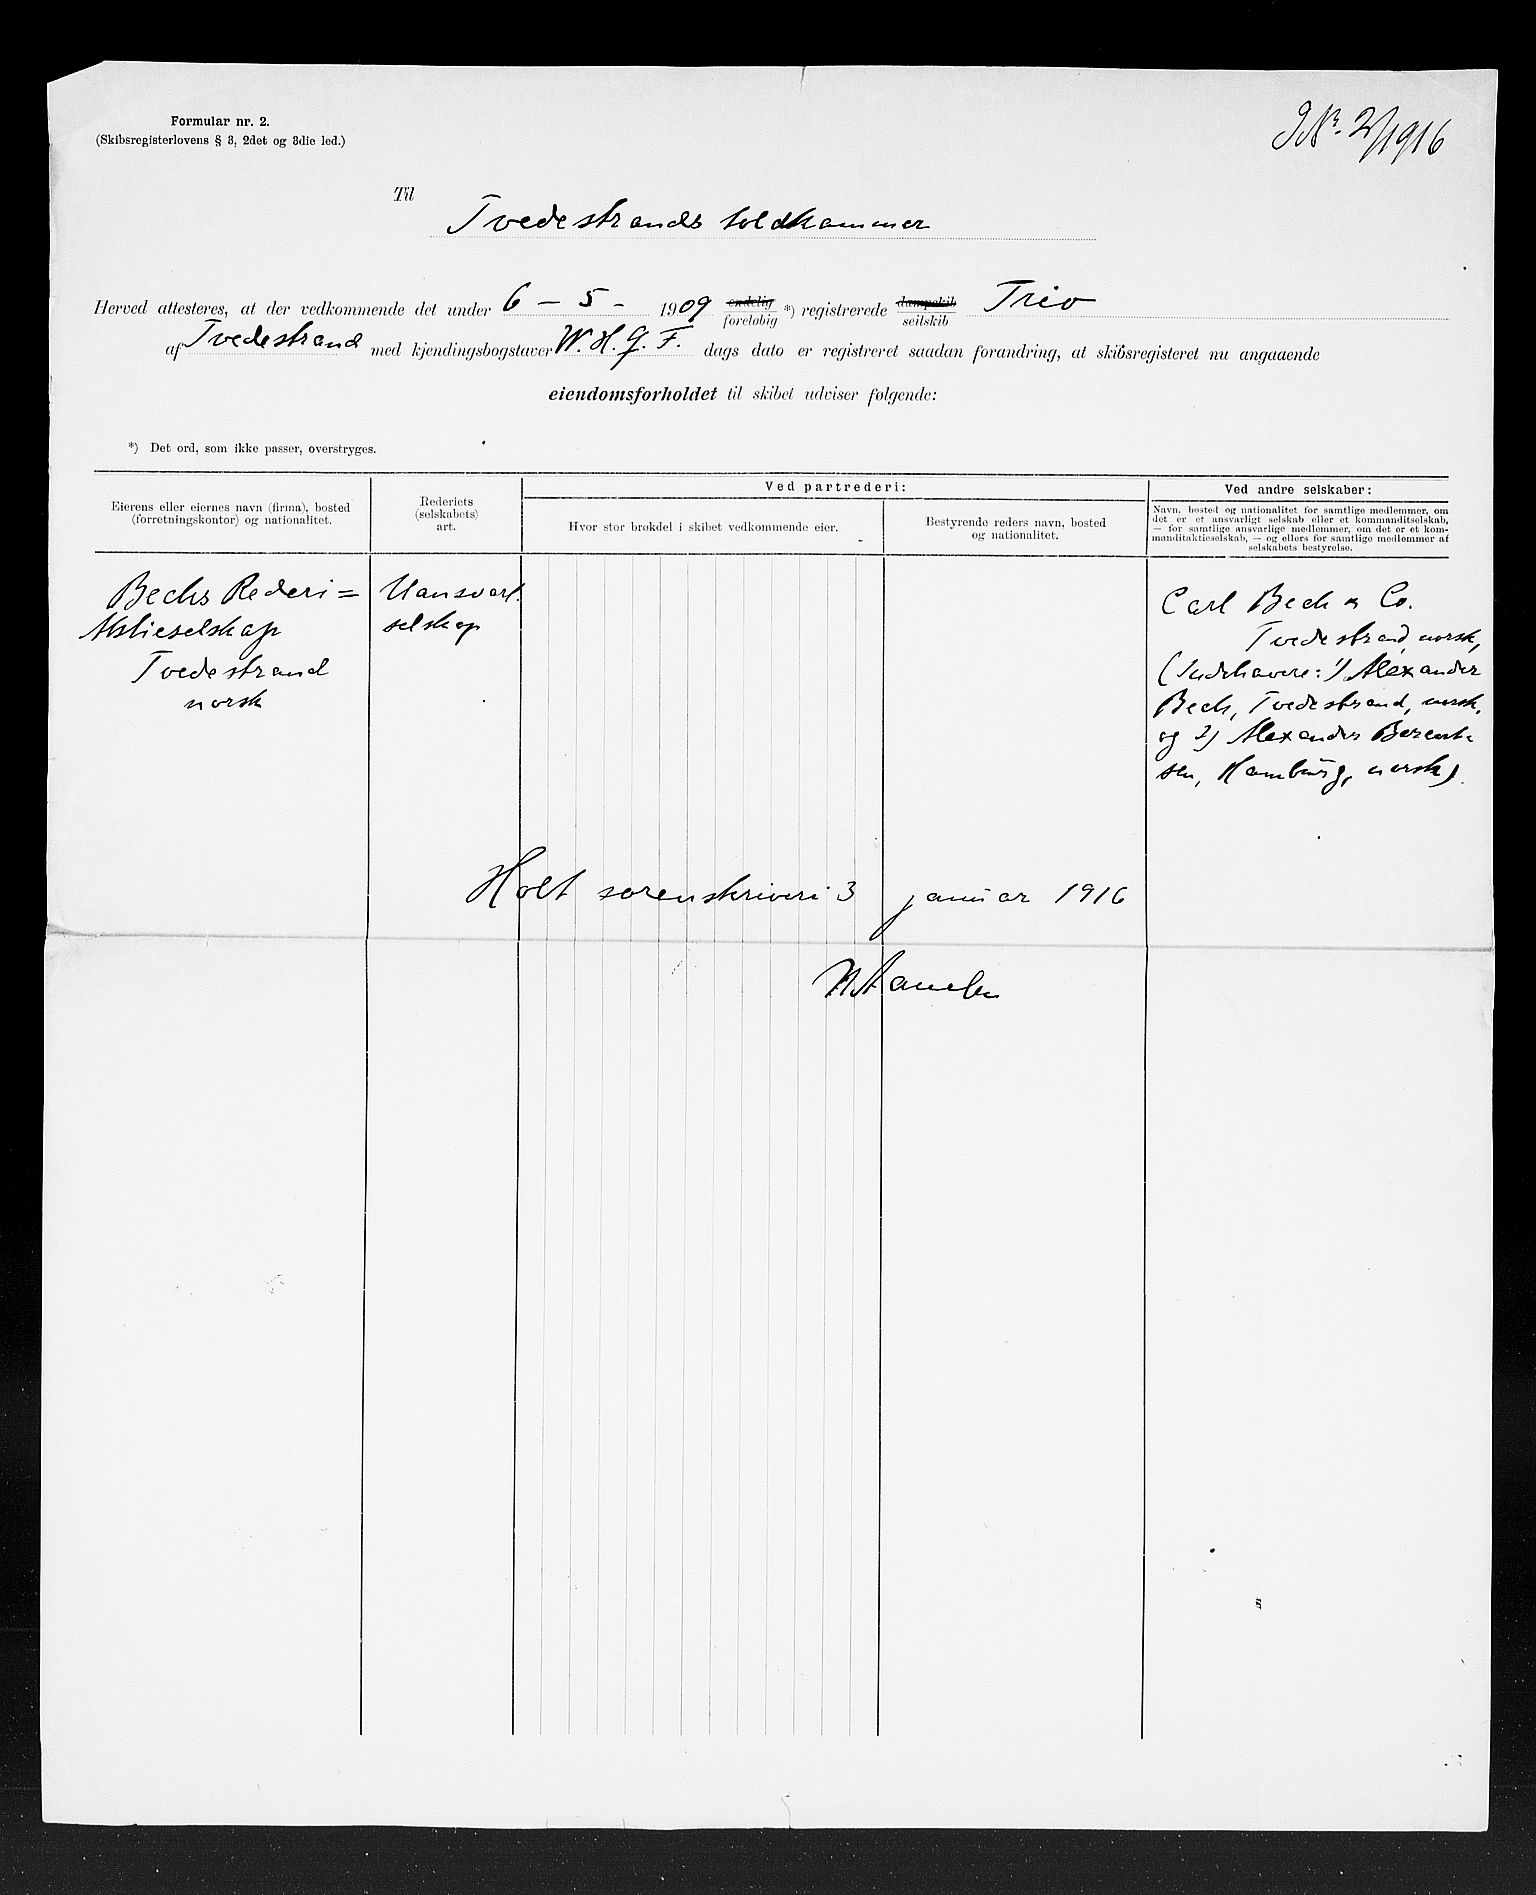 Formular nr. 2.
(Skibsregisterlovens § 3, 2det og 3die led.)
JNr. 2/1916
Til
Tvedestrands toldkammer
Herved attesteres, at der vedkommende det under 6 – 5 – 1909 endelig foreløbig *) registrerede dampskib seilskib Trio
af Tvedestrand med kjendingsbogstaver W. H. G. F. dags dato er registreret saadan forandring, at skibsregisteret nu angaaende
eiendomsforholdet til skibet udviser følgende:
*) Det ord, som ikke passer, overstryges.
Eierens eller eiernes navn (firma), bosted
(forretningskontor) og nationalitet.
Rederiets
(selskabets)
art.
Ved partrederi:
Hvor stor brøkdel i skibet vedkommende eier.
Bestyrende reders navn, bosted
og nationalitet.
Ved andre selskaber:
Navn, bosted og nationalitet for samtlige medlemmer, om
det er et ansvarligt selskab eller et kommanditselskab,
— for samtlige ansvarlige medlemmer, om det er et kom-
manditaktieselskab, — og ellers for samtlige medlemmer af
selskabets bestyrelse.
Bechs Rederi=
Aktieselskap
Tvedestrand
norsk
Uansvarl.
selskap
Carl Bech & Co.
Tvedestrand, norsk,
(Indehavere: 1) Alexander
Bech, Tvedestrand, norsk,
og 2) Alexander Berent-
sen, Hamburg, norsk)
Holt sorenskriveri 3 januar 1916